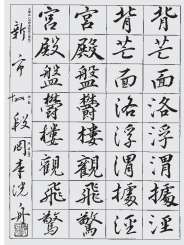 背芒面洛浮渭據涇
背芒面洛浮渭據涇
宮殿盤鬱樓觀飛驚
宮殿盤鬱樓觀飛驚
新市